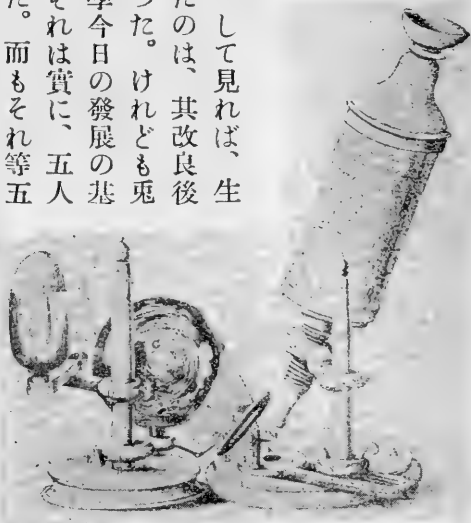 して見れば、生
たのは、其改良後
つた。けれども兎
學今日の發展の基
それは實に、五人
た。而もそれ等五